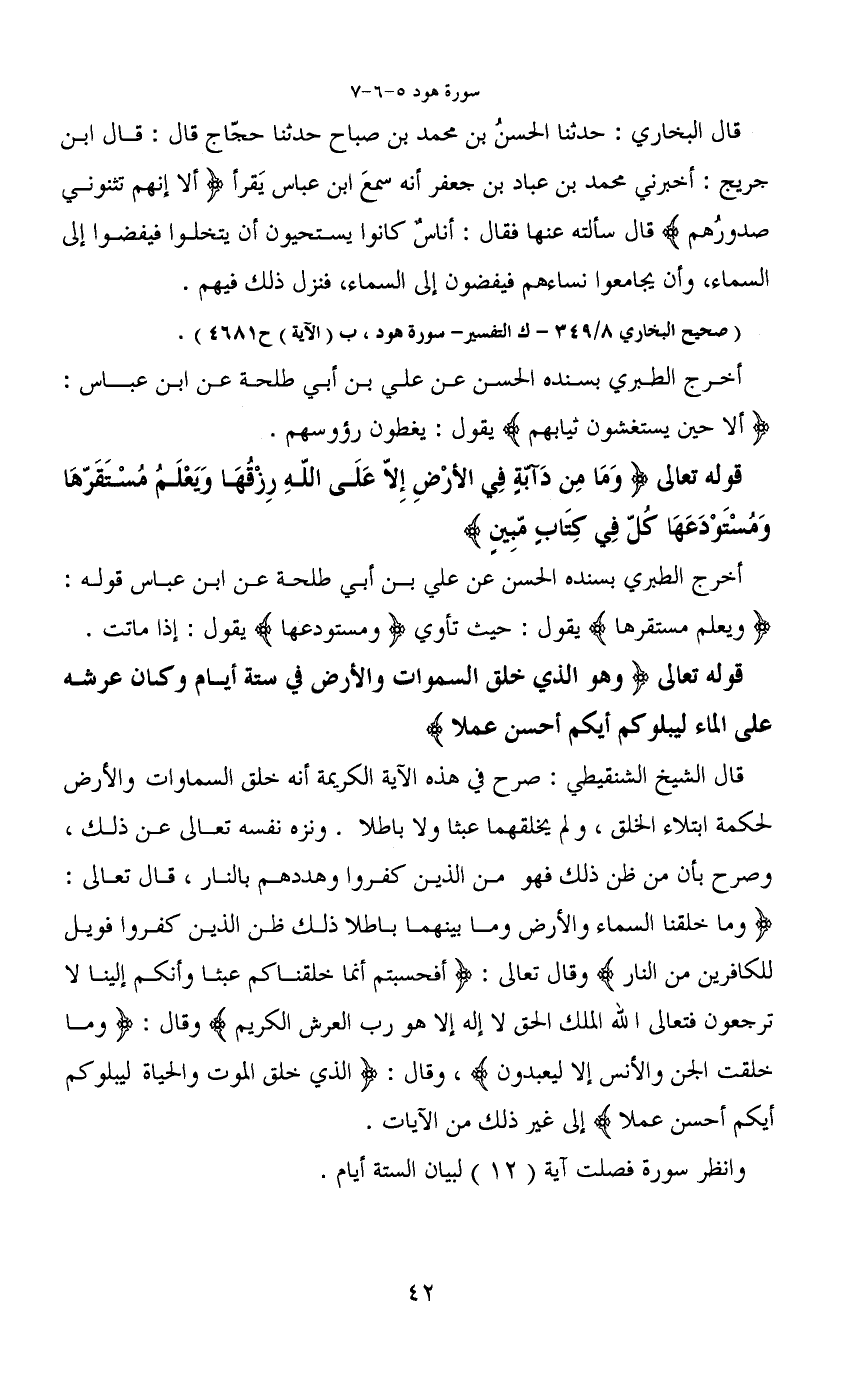 سورة هود ٥-٦-٧
قال البخاري : حدثنا الحسنُ بن محمد بن صباح حدثنا حجّاج قال : قال ابن
جريج : أخبرني محمد بن عباد بن جعفر أنه سمعَ ابن عباس يَقرأ ﴿ ألا إنهم تثنوني
صدورُهم ﴾ قال سألته عنها فقال : أناسٌ كانوا يستحيون أن يتخلوا فيفضوا إلى
السماء، وأن يجامعوا نساءهم فيفضون إلى السماء، فنزل ذلك فيهم .
( صحيح البخاري ٣٤٩/٨ – ك التفسير– سورة هود ، ب ( الآية ) ح٤٦٨١ ) .
أخرج الطبري بسنده الحسن عن علي بن أبي طلحة عن ابن عباس :
﴿ ألا حين يستغشون ثيابهم ﴾ يقول : يغطون رؤوسهم .
قوله تعالى ﴿ وَمَا مِن دَآبّةٍ فِي الأرْضِ إِلاّ عَلَى اللّهِ رِزْقُهَا وَيَعْلَمُ مُسْتَقَرّهَا
وَمُسْتَوْدَعَهَا كُلّ فِي كِتَابٍ مّبِينٍ ﴾
أخرج الطبري بسنده الحسن عن علي بن أبي طلحة عن ابن عباس قوله :
﴿ ويعلم مستقرها ﴾ يقول : حيث تأوي ﴿ ومستودعها ﴾ يقول : إذا ماتت .
قوله تعالى ﴿ وهو الذي خلق السموات والأرض في ستة أيام وكان عرشه
على الماء ليبلوكم أيكم أحسن عملا ﴾
قال الشيخ الشنقيطي : صرح في هذه الآية الكريمة أنه خلق السماوات والأرض
لحكمة ابتلاء الخلق ، ولم يخلقهما عبثا ولا باطلا . ونزه نفسه تعالى عن ذلك ،
وصرح بأن من ظن ذلك فهو من الذين كفروا وهددهم بالنار ، قال تعالى :
﴿ وما خلقنا السماء والأرض وما بينهما باطلا ذلك ظن الذين كفروا فويل
للكافرين من النار ﴾ وقال تعالى : ﴿ أفحسبتم أنما خلقناكم عبثا وأنكم إلينا لا
ترجعون فتعالى الله الملك الحق لا إله إلا هو رب العرش الكريم ﴾ وقال : ﴿ وما
خلقت الجن والأنس إلا ليعبدون ﴾ ، وقال : ﴿ الذي خلق الموت والحياة ليبلوكم
أيكم أحسن عملا ﴾ إلى غير ذلك من الآيات .
وانظر سورة فصلت آية ( ١٢ ) لبيان الستة أيام .
٤٢